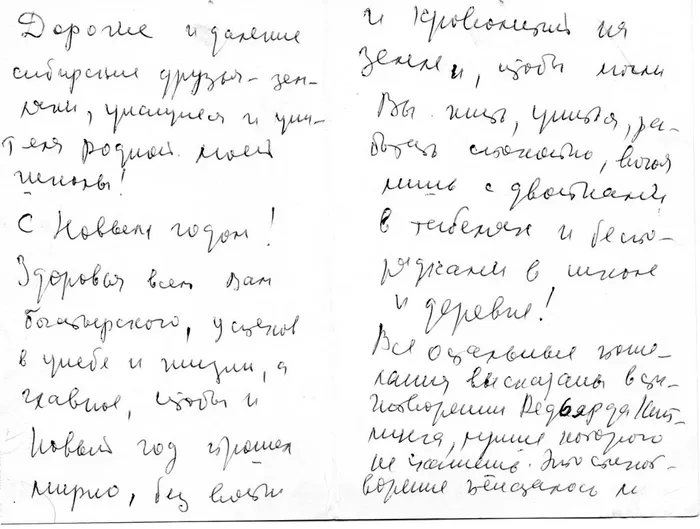 Дорогие и далекие
сибирские друзья – зем-
ляки, учащиеся и учи-
теля родной моей
школы!
С Новым годом!
Здоровья всем вам
богатырского, успехов
в учебе и жизни, а
главное, чтобы и
Новый год прошел
мирно, без войны
и кровопролитий на
земле и, чтобы могли
Вы жить, учиться, ра-
ботать спокойно, воюя
лишь с двойками
в табелях и беспо-
рядками в школе
и деревне!
Все остальные поже-
лания высказаны в сти-
хотворении Редьярда Кип-
линга, лучше которого
не скажешь. Это стихот-
ворение